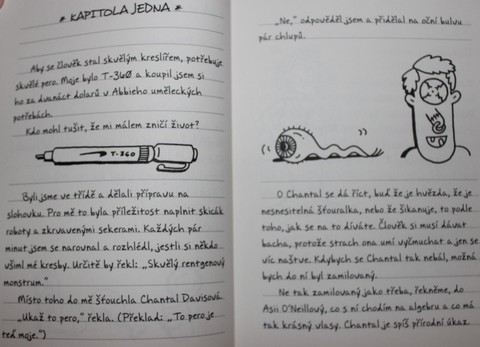 * KAPITOLA JEDNA *
Aby se člověk stal skvělým kreslířem, potřebuje
skvělé pero. Moje bylo T-360 a koupil jsem si
ho za dvanáct dolarů v Abbieho uměleckých
potřebách.
Kdo mohl tušit, že mi málem zničí život?
T-360
Byli jsme ve třídě a dělali přípravu na
slohovku. Pro mě to byla příležitost naplnit skicák
roboty a zkrvavenými sekerami. Každých pár
minut jsem se narovnal a rozhlédl, jestli si někdo
všiml mé kresby. Určitě by řekli: „Skvělý rentgenový
monstrum."
Místo toho do mě šťouchla Chantal Davisová.
„Ukaž to pero," řekla. (Překlad: „To pero je
teď moje.")
„Ne," odpověděl jsem a přidělal na oční bulvu
pár chlupů.
O Chantal se dá říct, buď že je hvězda, že je
nesnesitelná šťouralka, nebo že šikanuje, to podle
toho, jak se na to díváte. Člověk si musí dávat
bacha, protože strach ona umí vyčmuchat a jen se
víc naštve. Kdybych se Chantal tak nebál, možná
bych do ní byl zamilovaný.
Ne tak zamilovaný jako třeba, řekněme, do
Asii O'Neillový, co s ní chodím na algebru a co má
tak krásný vlasy. Chantal je spíš přírodní úkaz.